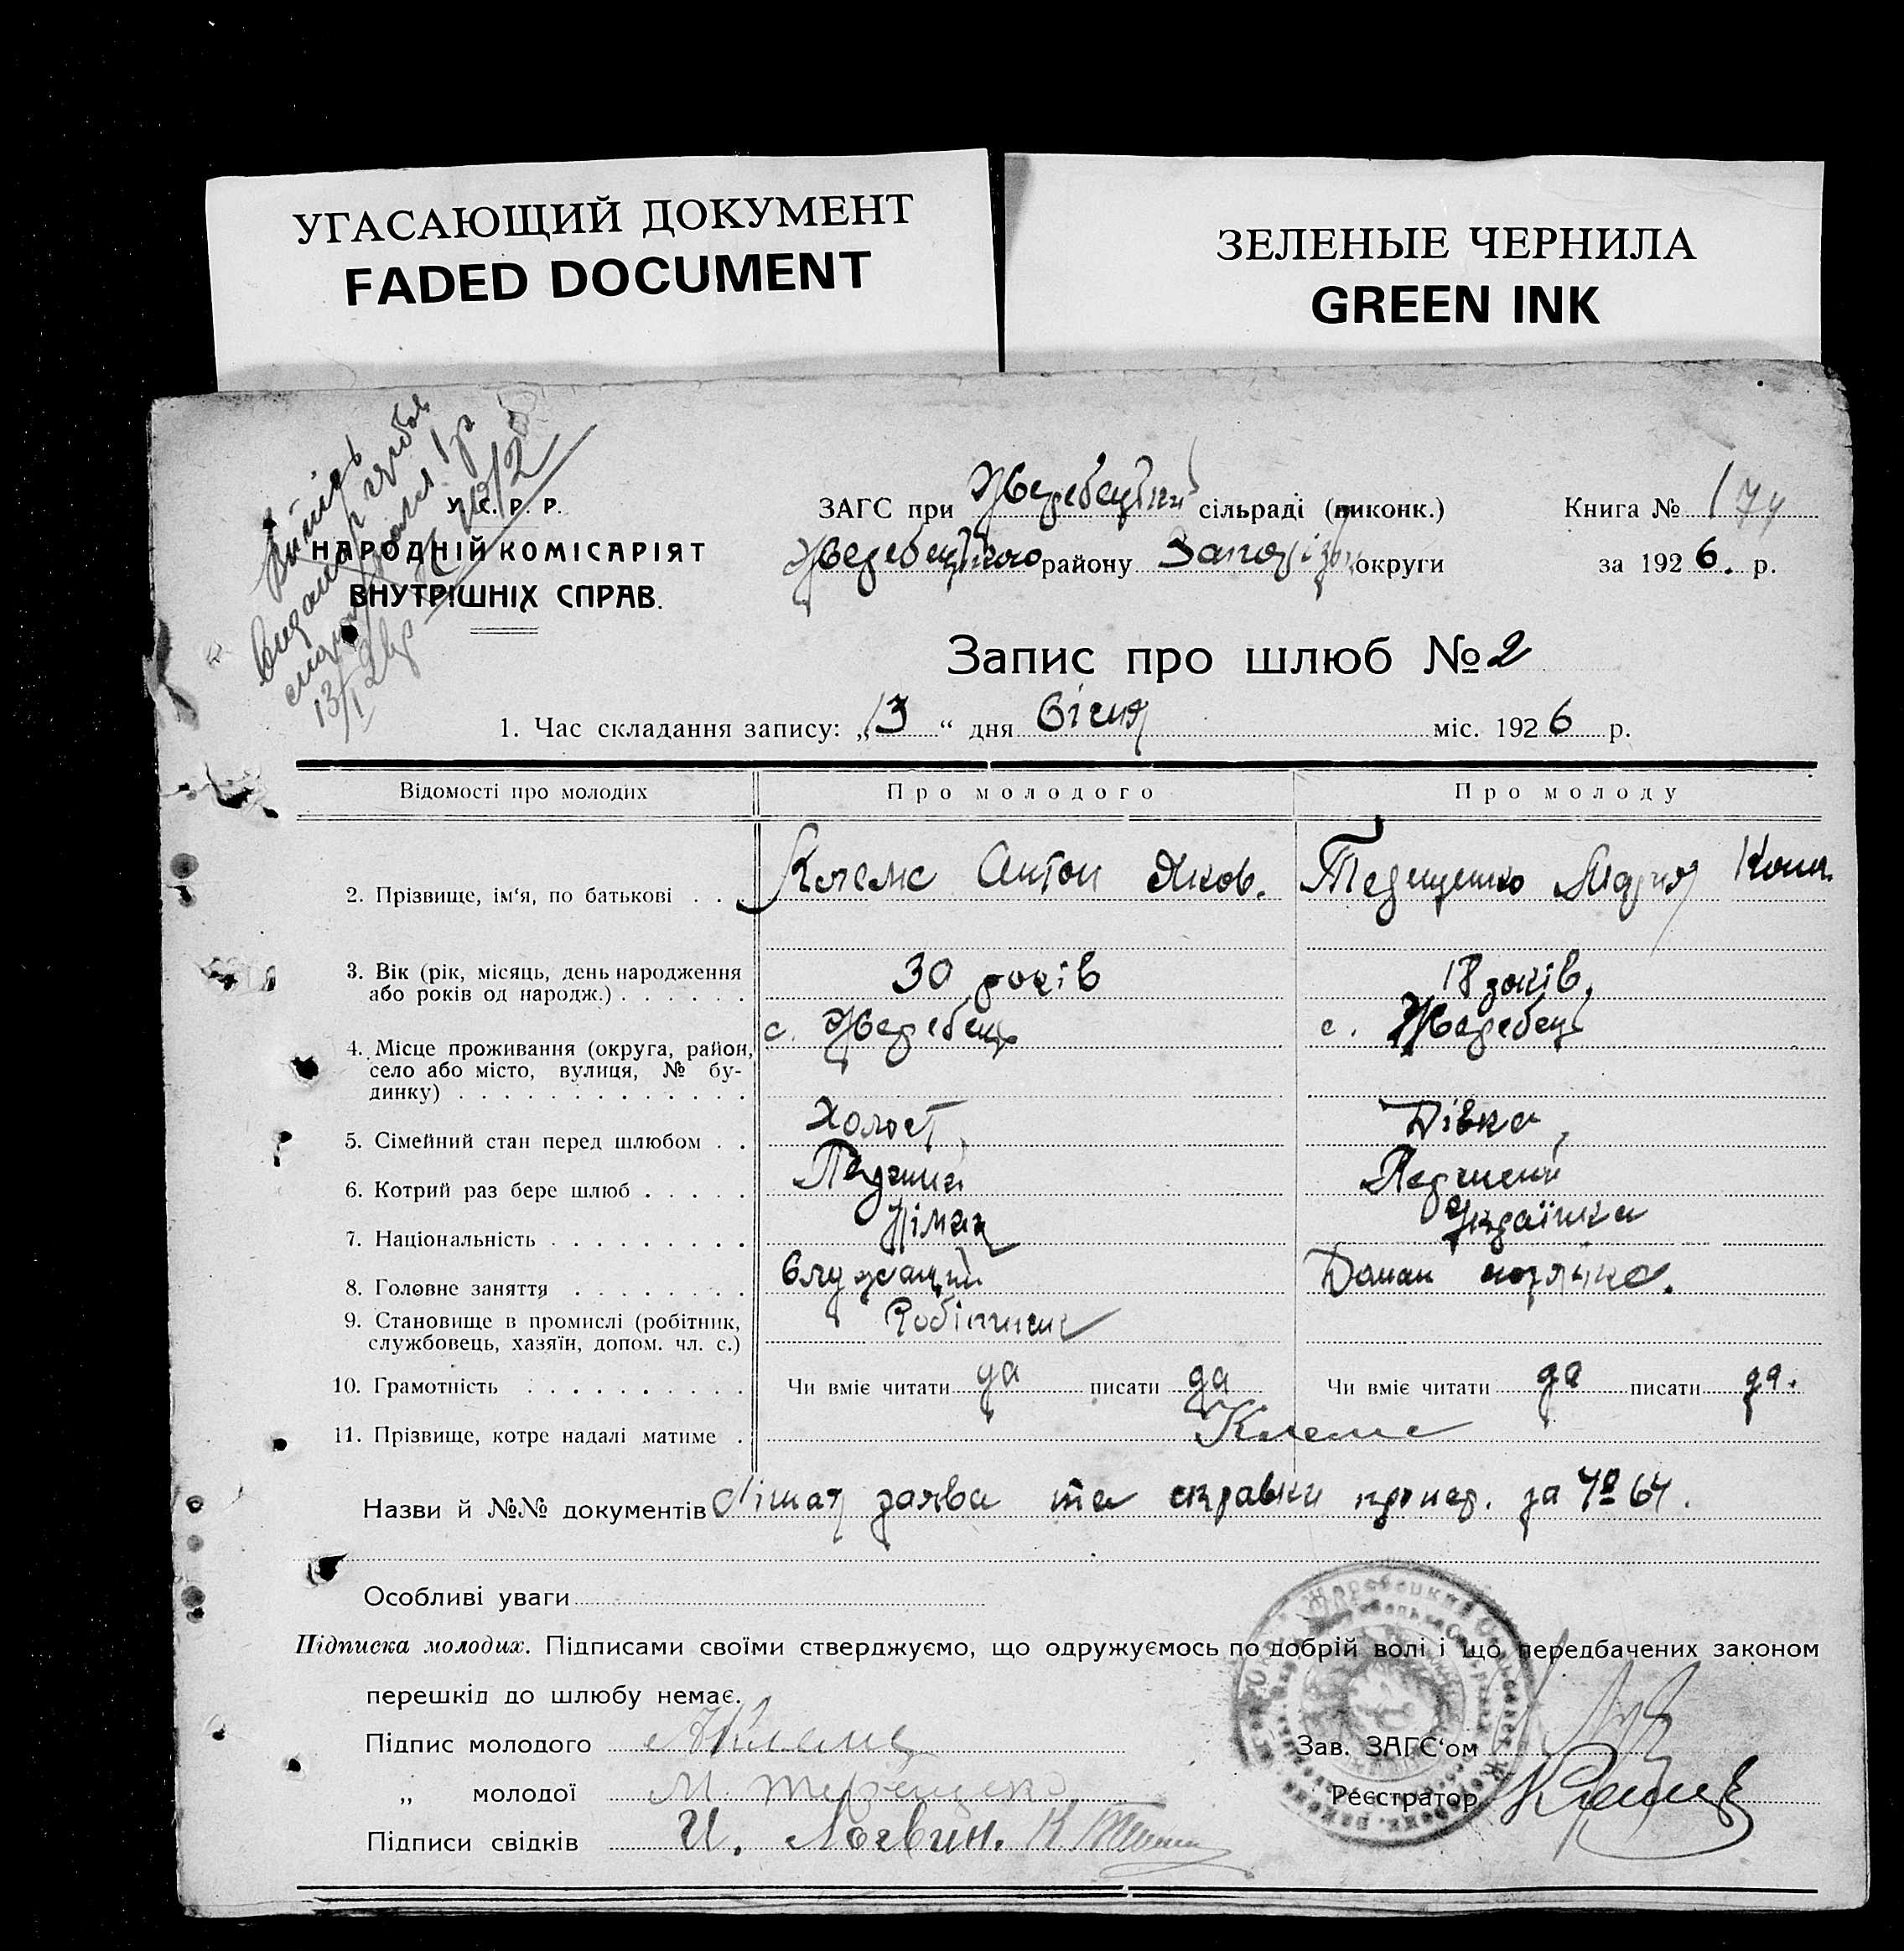 УГАСАЮЩИЙ ДОКУМЕНТ
FADED DOCUMENT
ЗЕЛЕНЫЕ ЧЕРНИЛА
GREEN INK
У. С. Р. Р.
НАРОДНІЙ КОМІСАРІЯТ
ВНУТРІШНІХ СПРАВ.
13/I 2
ЗАГС при Жеребецькій сільраді (виконк.)
Жеребецького району Запоріз. округи
Книга № 1 74
за 1926. р.
Запис про шлюб № 2
1. Час складання запису: „13“ дня Січня міс. 1926 р.
Відомості про молодих Про молодого Про молоду
2. Прізвище, ім‘я, по батькові . . . Клемс Антон Яков. Терещенко Мария Кон.
3. Вік (рік, місяць, день народження
або років од народж.) . . . . . . 30 років 18 років,
4. Місце проживання (округа, район, с. Жеребець с. Жеребець
село або місто, вулиця, № бу-
динку) . . . . . . . . . . . . .
5. Сімейний стан перед шлюбом . . Холост, Дівка,
6. Котрий раз бере шлюб . . . . . Перший Перший
7. Національність . . . . . . . . . Німец Українка
8. Головне заняття . . . . . . . . Служащий Домаш
9. Становище в промислі (робітник, Робітник
службовець, хазяїн, допом. чл. с.)
10. Грамотність . . . . . . . . . . Чи вміє читати да писати да Чи вміє читати да писати да.
11. Прізвище, котре надалі матиме . Клемс
Назви й №№ документів заява та справки за № 64.
Особливі уваги
Підписка молодих. Підписами своїми стверджуємо, що одружуємось по добрій волі і що передбачених законом
перешкід до шлюбу немає.
Підпис молодого АКлемс
Зав. ЗАГС‘ом
„ молодої М. Терещенко
Реєстратор
Підписи свідків И. Логвин. К